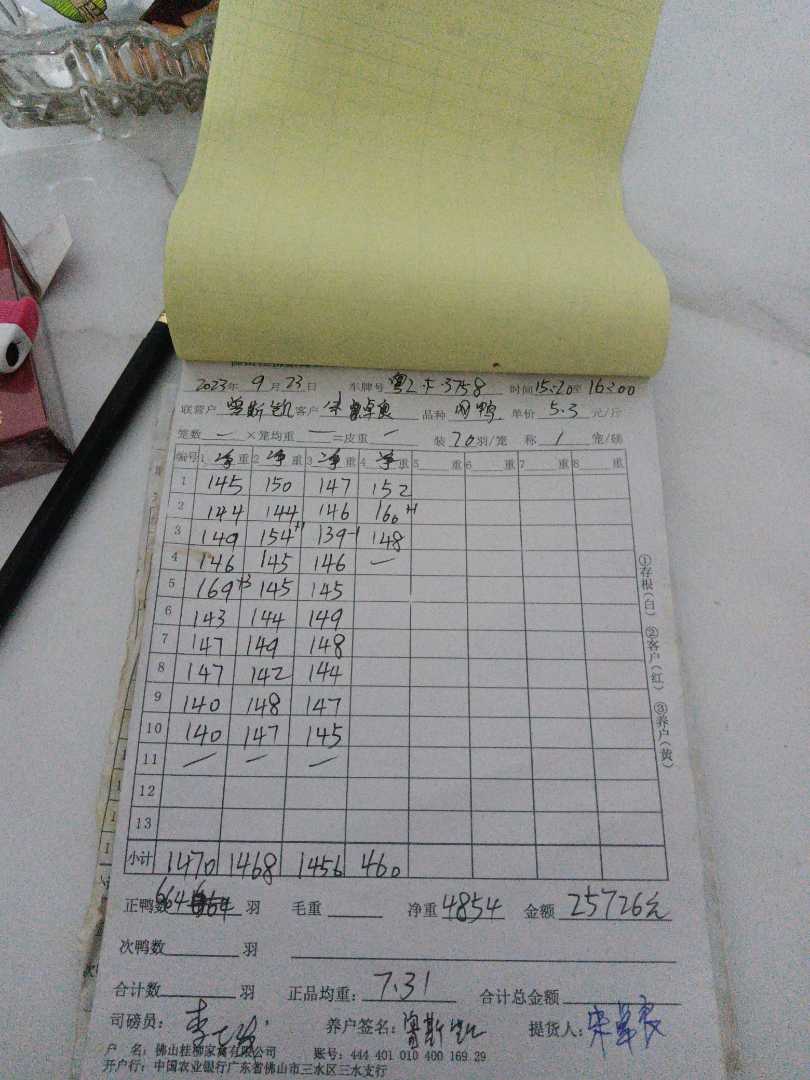 2023年 9月23日 车牌号 粤Z·F·3758 时间15:20至16:00
联营户 客户 品种 单价 5.3 元/斤
笼数 — ×笼均重 — =皮重 — 装 20羽/笼 称 1 笼/磅
编号 1 净重 2 净重 3 净重 4 净重 5 重 6 重 7 重 8 重
1 145 150 147 152
2 144 144 146 160+1
3 149 154+1 139-1 148
4 146 145 146 —
5 169+3 145 145
6 143 144 149
7 147 149 148
8 147 142 144
9 140 148 147
10 140 147 145
11 — — —
12
13
小计 1470 1468 1456 460
正鸭数 664 羽 毛重 净重 4854 金额 25726元
次鸭数 羽
合计数 羽 正品均重: 7.31 合计总金额
司磅员: 养户签名: 提货人:
户 名: 佛山桂柳家禽有限公司 账号: 444 401 010 400 169 29
开户行: 中国农业银行广东省佛山市三水区三水支行
①存根(白) ②客户(红) ③养户(黄)